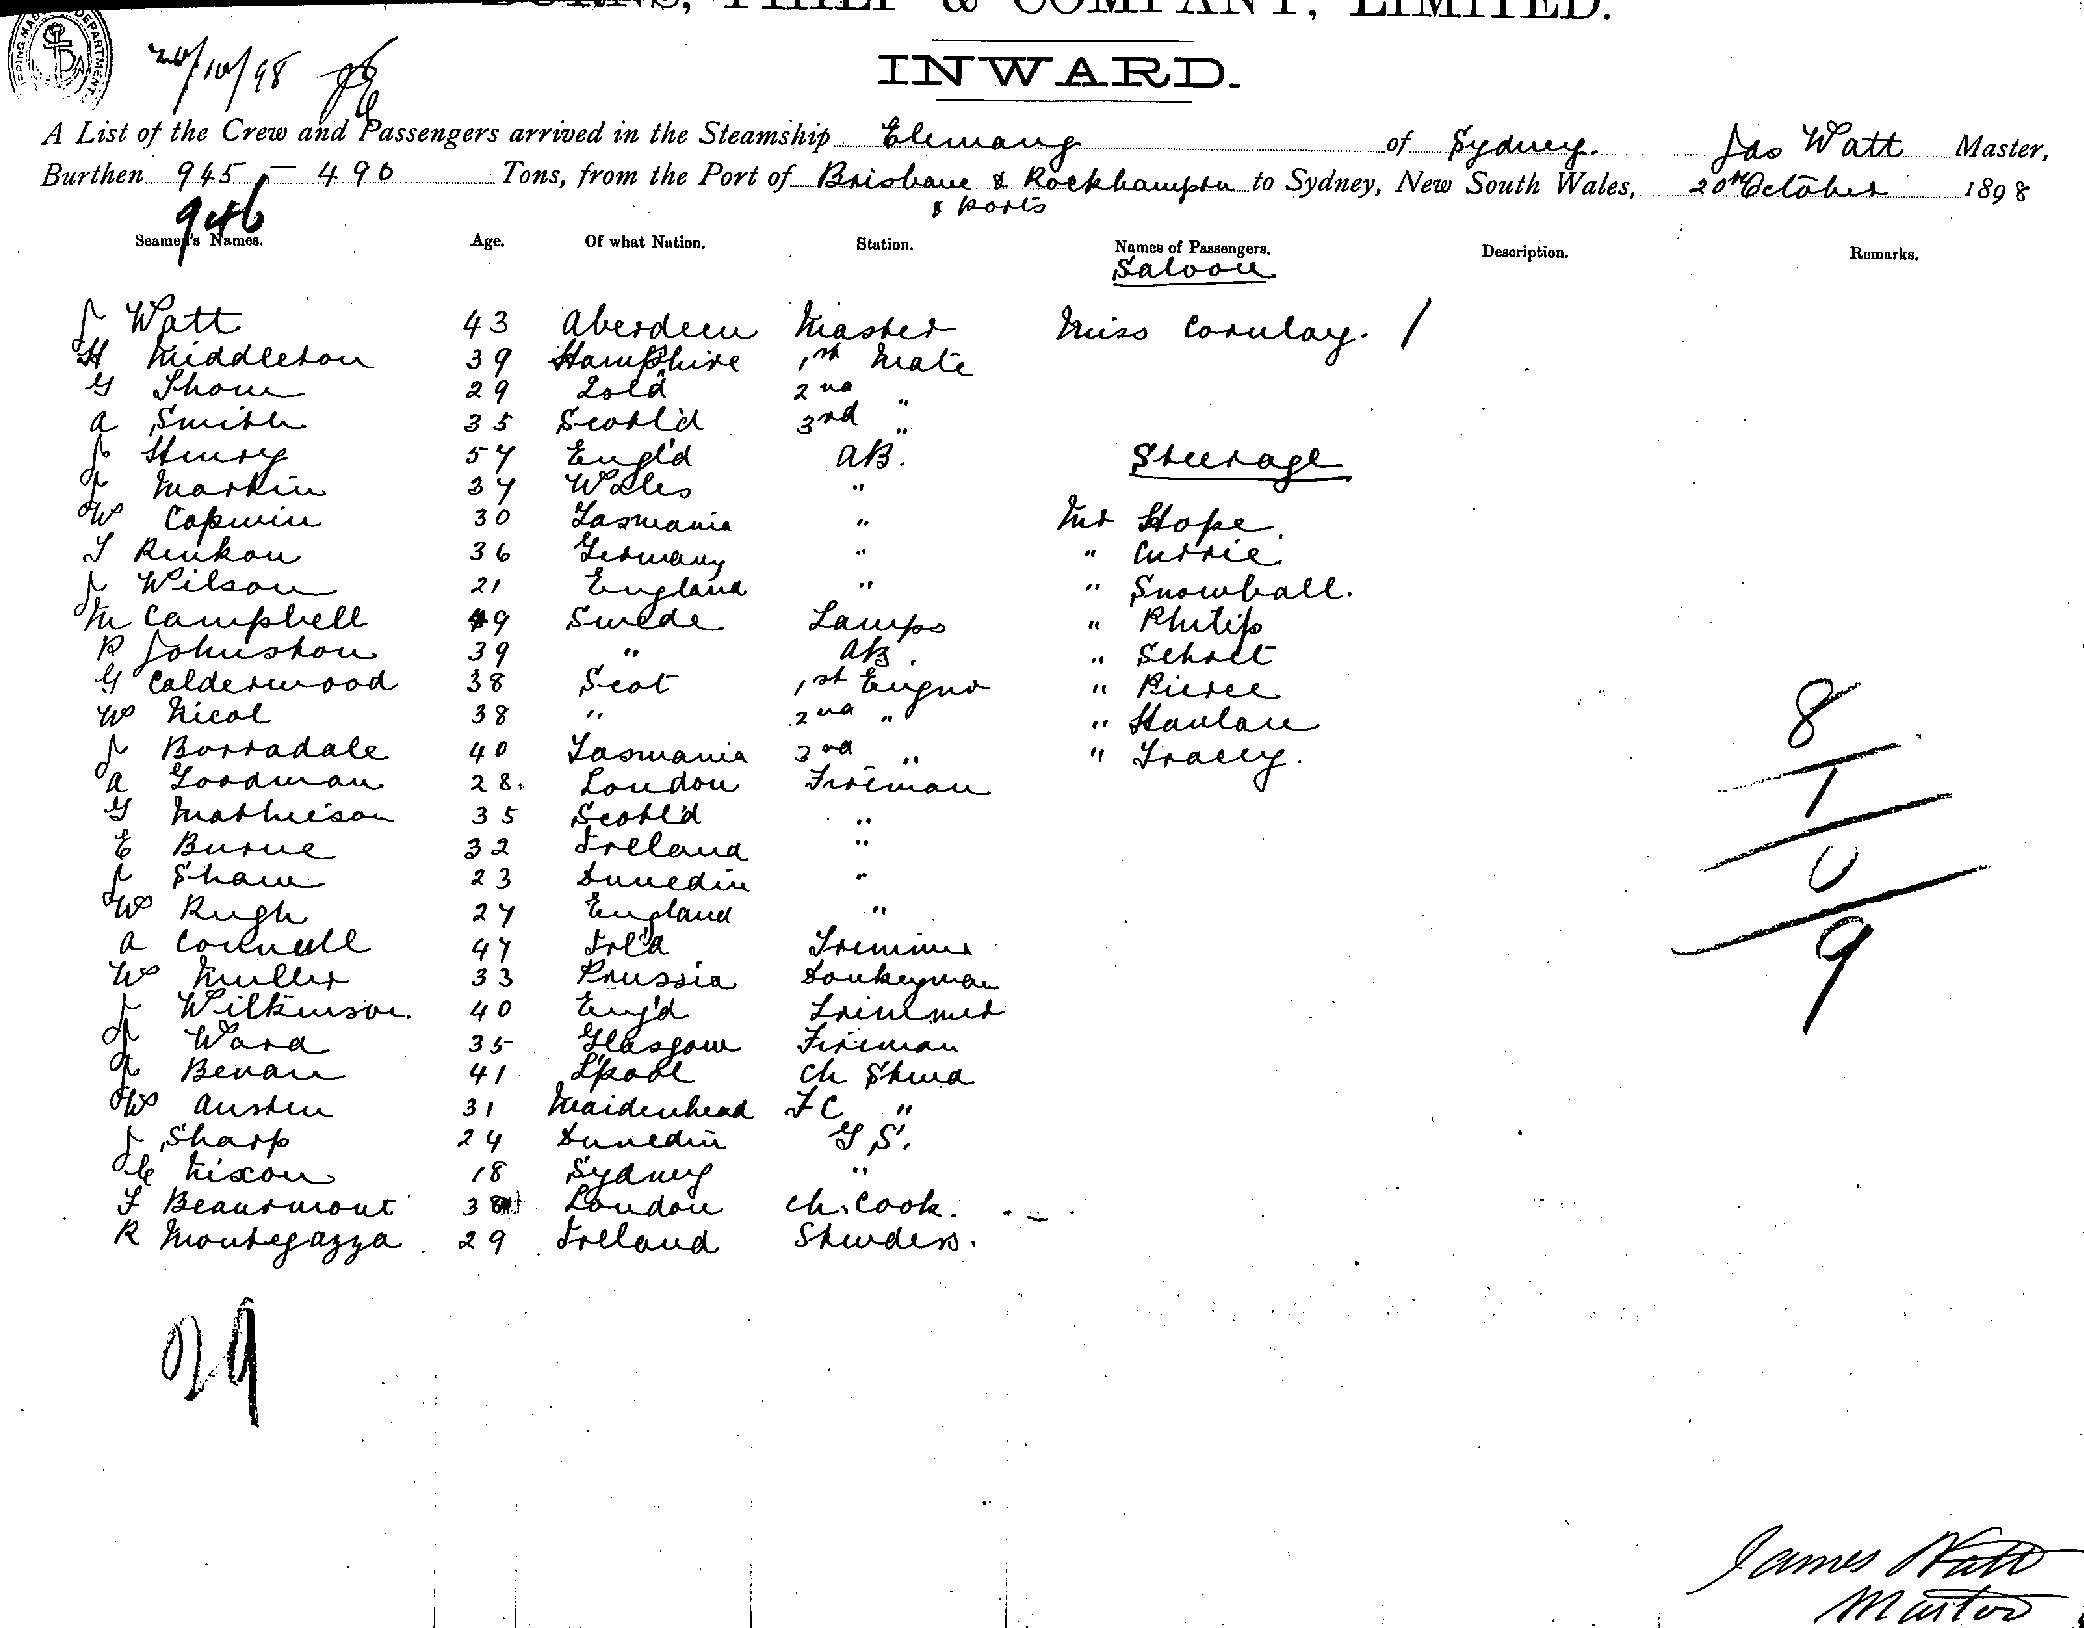 BURNS, PHILP & COMPANY, LIMITED.
INWARD.
20/10/98
A List of the Crew and Passengers arrived in the Steamship Elemang of Sydney. Jas Watt Master,
Burthen 945 - 490 Tons, from the Port of Brisbane & Rockhampton to Sydney, New South Wales, 20th October 1898
& Ports
946
Seamen's Names. Age. Of what Nation. Station. Names of Passengers. Description. Remarks.
Saloon
J Watt 43 Aberdeen Master Miss Cornlay. 1
H Middleton 39 Hampshire 1st Mate
G Thom 29 Zold 2nd "
A Smith 35 Scotl'd 3rd "
J Henry 57 Engl'd AB. Steerage
J Martin 37 Wales "
W Capwin 30 Tasmania " Mr Hope.
T Rinkon 36 Germany " " Currie.
J Wilson 21 England " " Snowball.
M Campbell 49 Swede Lamps " Philip
R Johnston 39 " AB. " Schott
G Calderwood 38 Scot 1st Engnr " Pierce
W Nicol 38 " 2nd " " Hanlan
J Borradale 40 Tasmania 3rd " " Tracey.
A Goodman 28. London Fireman
G Mathieson 35 Scotl'd "
E Burne 32 Ireland "
J Shaw 23 Dunedin "
W Rugh 27 England "
A Cornwell 47 Irl'd Trimmer
W Muller 33 Prussia Donkeyman
J Wilkinson. 40 Eng'd Trimmer
J Ward 35 Glasgow Fireman
J Bevan 41 L'pool Ch Stwd
W Austen 31 Maidenhead FC "
J Sharp 24 Dunedin G S.
C Nixon 18 Sydney "
F Beaurmont 38 London Ch. Cook.
R Montegazza 29 Ireland Stwdess.
8
1
0
9
29
James Watt
Master